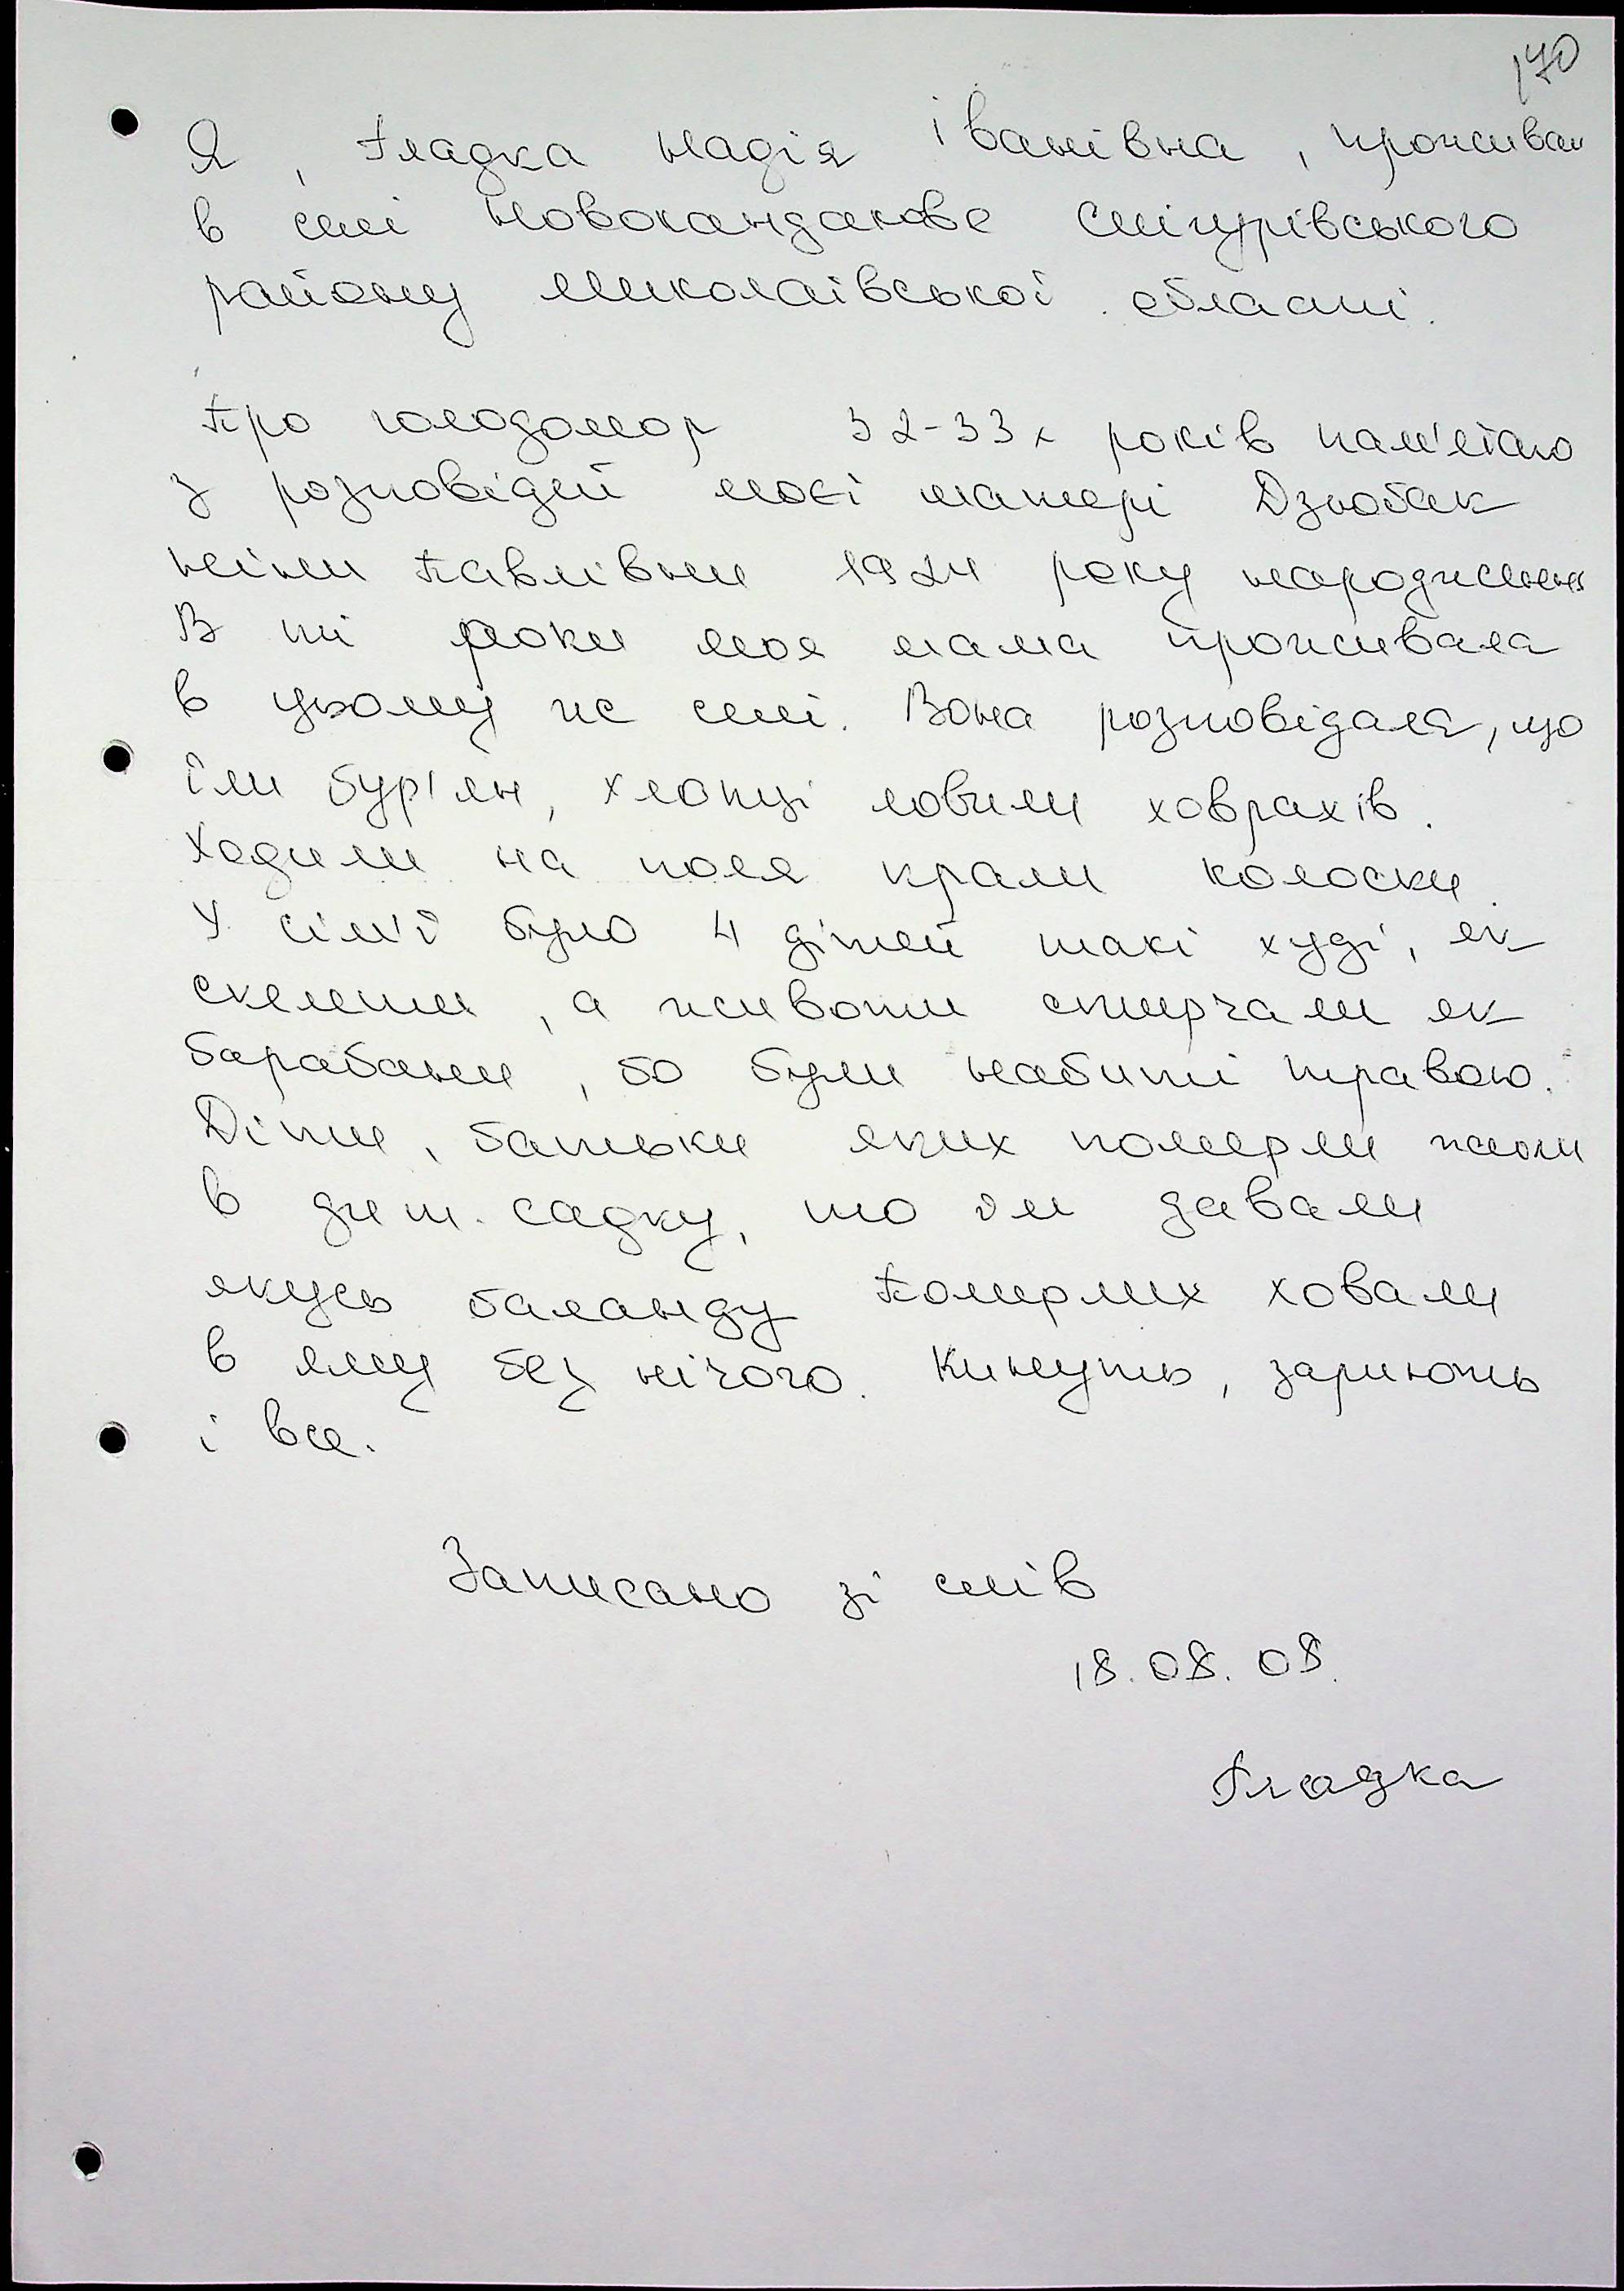 170
Я, Гладка Надія Іванівна, проживаю
в селі Новокандакове Снігурівського
району Миколаївської області.
Про голодомор 32-33х років пам'ятаю
з розповідей моєї матері Дзюбак
Ніни Павлівни 1924 року народження
В ті роки моя мама проживала
в цьому же селі. Вона розповідала, що
їли бур'ян, хлопці ловили ховрахів.
Ходили на поля крали колоски.
У сім'ї було 4 дітей такі худі, як
скелети, а животи стирчали як
барабани, бо були набиті травою.
Діти, батьки яких померли жили
в дит. садку, то їм давали
якусь баланду Померлих ховали
в яму без нічого. Кинуть, зариють
і все.
Записано зі слів
18.08.08.
Гладка